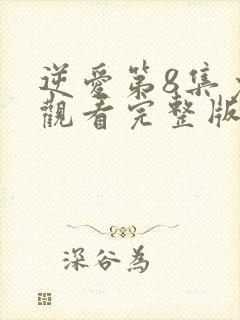 逆愛第8集
觀看完整版
深谷為